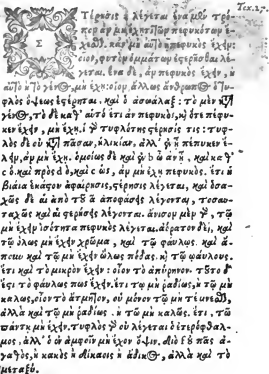 Τέρησις ἢ λέγεται ἕνα μὲν τρό-
πον ἂν μὴ ἔχῃ τὶ τῶν πεφυκότων ἔ-
χεσθαι. κἂν μὴ αὐτὸ ᾖ πεφυκὸς ἔχειν:
οἷον, φυτὸν ὀμμάτων ἐστερῆσθαι λέ-
γεται. ἕνα δὲ, ἂν πεφυκὸς ἔχειν, ἢ
αὐτὸ ἢ τὸ γένος, μὴ ἔχῃ: οἷον, ἄλλως ἄνθρωπος ὁ τυ-
φλὸς ὄψεως ἐστέρηται, καὶ ὁ ἀσπάλαξ: τὸ μὲν κατὰ
γένος, τὸ δὲ καθ' αὑτό. ἔτι ἂν πεφυκὸς, καὶ ὅτε πέφυ-
κεν ἔχειν, μὴ ἔχῃ. ἡ γὰρ τυφλότης στέρησίς τις: τυφ-
λὸς δὲ οὐ κατὰ πᾶσαν, ἡλικίαν, ἀλλ' ἐν ᾗ πέφυκεν ἔ-
χειν, ἂν μὴ ἔχῃ. ὁμοίως δὲ καὶ ἐν ᾧ ἂν ᾖ, καὶ καθ'
ὃ καὶ πρὸς ὃ, καὶ ὡς, ἂν μὴ ἔχῃ πεφυκός. ἔτι ἡ
βιαία ἑκάστου ἀφαίρησις, στέρησις λέγεται, καὶ ὁσα-
χῶς δὲ αἱ ἀπὸ τοῦ ᾱ ἀποφάσεις λέγονται, τοσαυ-
ταχῶς καὶ αἱ στερήσεις λέγονται. ἄνισον μὲν γὰρ, τῷ
μὴ ἔχειν ἰσότητα πεφυκὸς λέγεται. ἀόρατον δὲ, καὶ
τῷ ὅλως μὴ ἔχειν χρῶμα, καὶ τῷ φαύλως. καὶ ἄ-
πουν καὶ τῷ μὴ ἔχειν ὅλως πόδας. καὶ τῷ φαύλους.
ἔτι καὶ τὸ μικρὸν ἔχειν: οἷον τὸ ἀπύρηνον. τοῦτο δ'
ἐστὶ τὸ φαύλως πως ἔχειν. ἔτι τῷ μὴ ῥᾳδίως, ἢ τῷ μὴ
καλῶς, οἷον τὸ ἄτμητον, οὐ μόνον τῷ μὴ τέμνεσθαι,
ἀλλὰ καὶ τῷ μὴ ῥᾳδίως. ἢ τῷ μὴ καλῶς. ἔτι, τῷ
πάντῃ μὴ ἔχειν. τυφλὸς γὰρ οὐ λέγεται ὁ ἑτερόφθαλ-
μος, ἀλλ' ὁ ἐν ἀμφοῖν μὴ ἔχων ὄψιν. διὸ οὐ πᾶς ἀ-
γαθὸς, ἢ κακὸς ἢ δίκαιος ἢ ἄδικος, ἀλλὰ καὶ τὸ
μεταξύ.